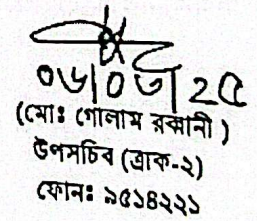 ০৬|০৬|২৫
(মোঃ গোলাম রব্বানী )
উপসচিব (ত্রাক-২)
ফোনঃ ৯৫১৪২২১